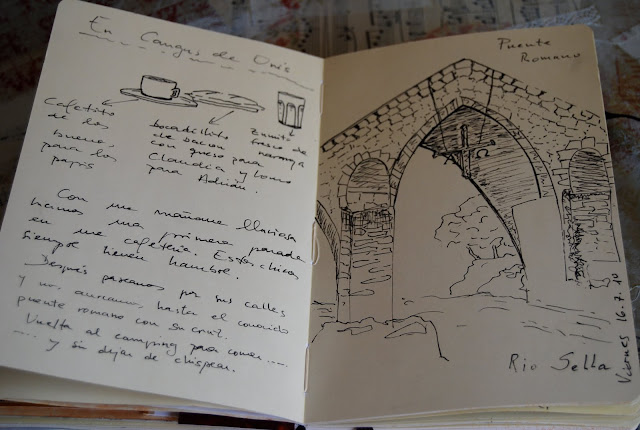 En Cangas de Onís
Cafetito
de los
buenos
para los
papis
bocadillito
de bacon
con queso para
Claudia y lomo
para Adrián.
Zumito
fresco de
naranja
Con una mañana lluviosa
hacemos una primera parada
en una cafetería. Estos chicos
siempre tienen hambre.
Después paseamos por sus calles
y nos acercamos hasta el conocido
puente romano con su cruz.
Vuelta al camping para comer ....
.... y sin dejar de chispear.
Puente
Romano
Rio Sella
Viernes 16-7-10